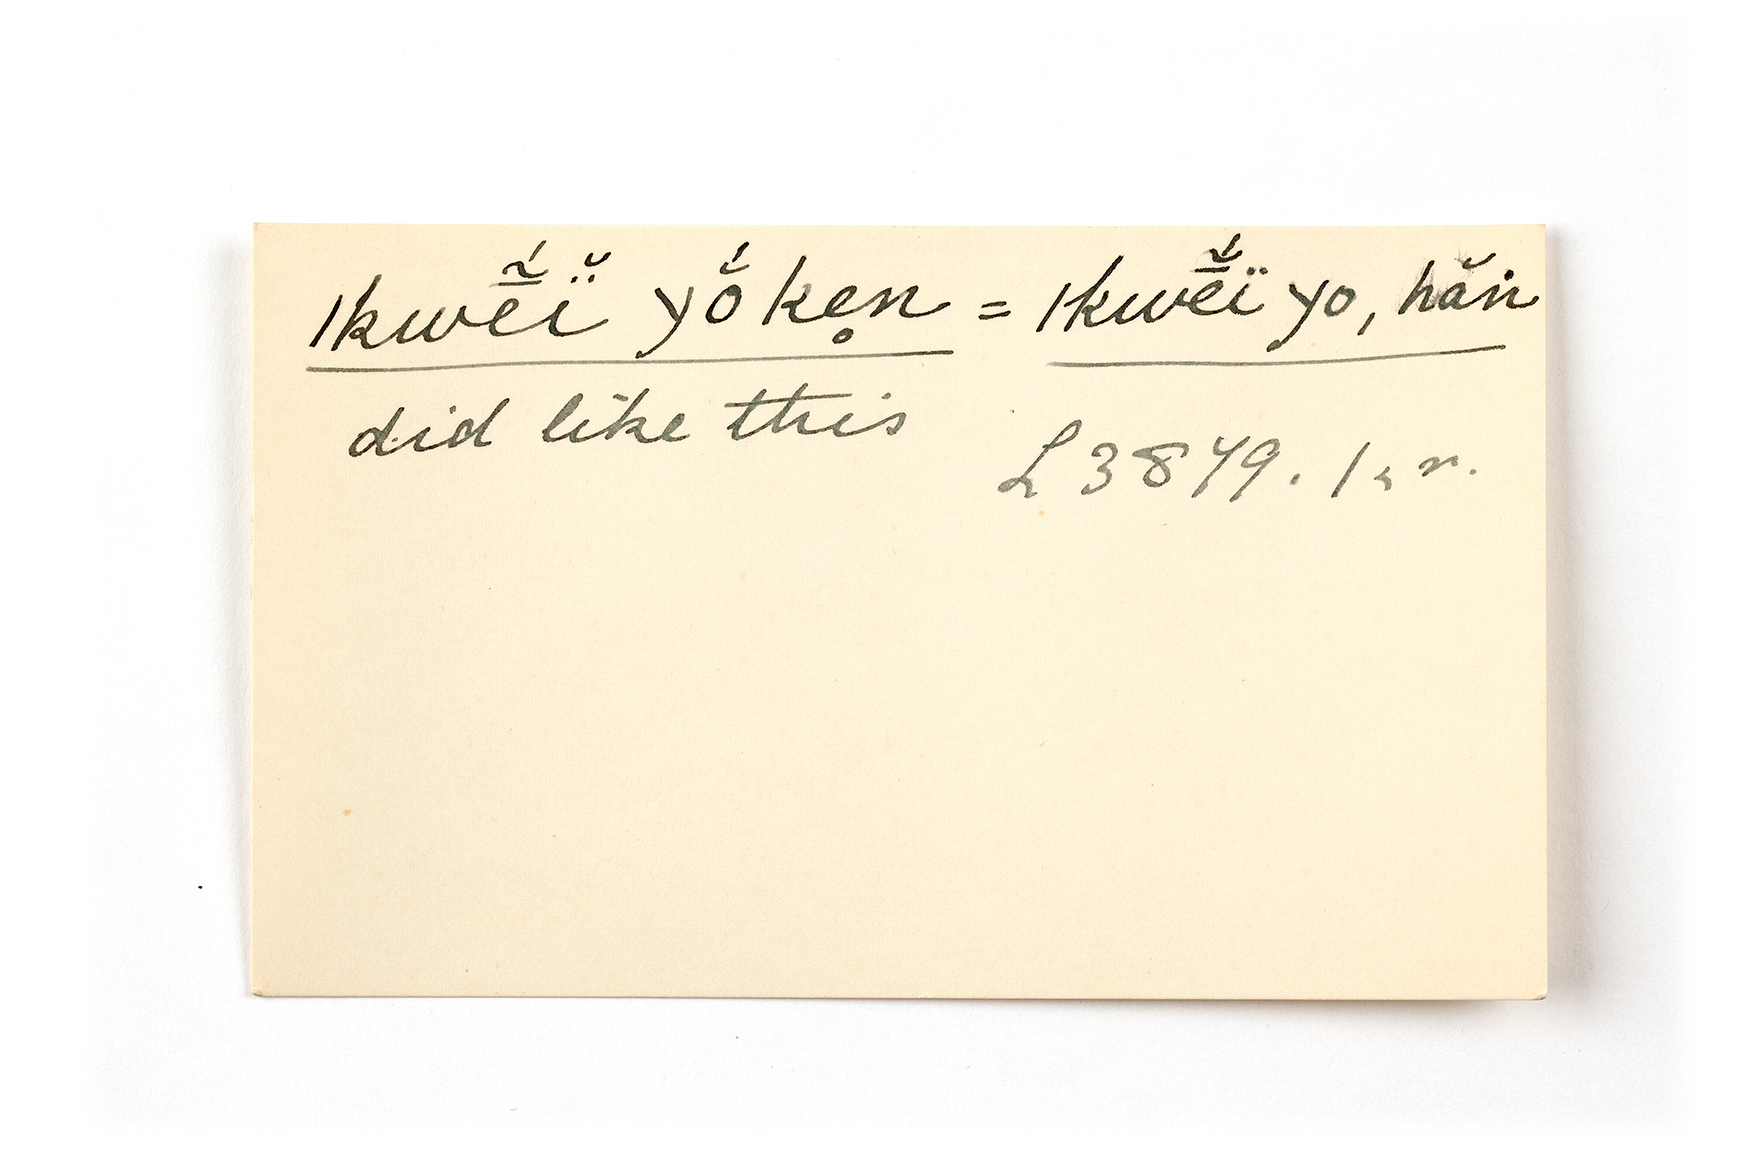 ikwẽ̄́ï̆ yŏ́ken̥ = ikwẽ̄́ï yo, hăṅ
did like this
L 3879. 1, r.